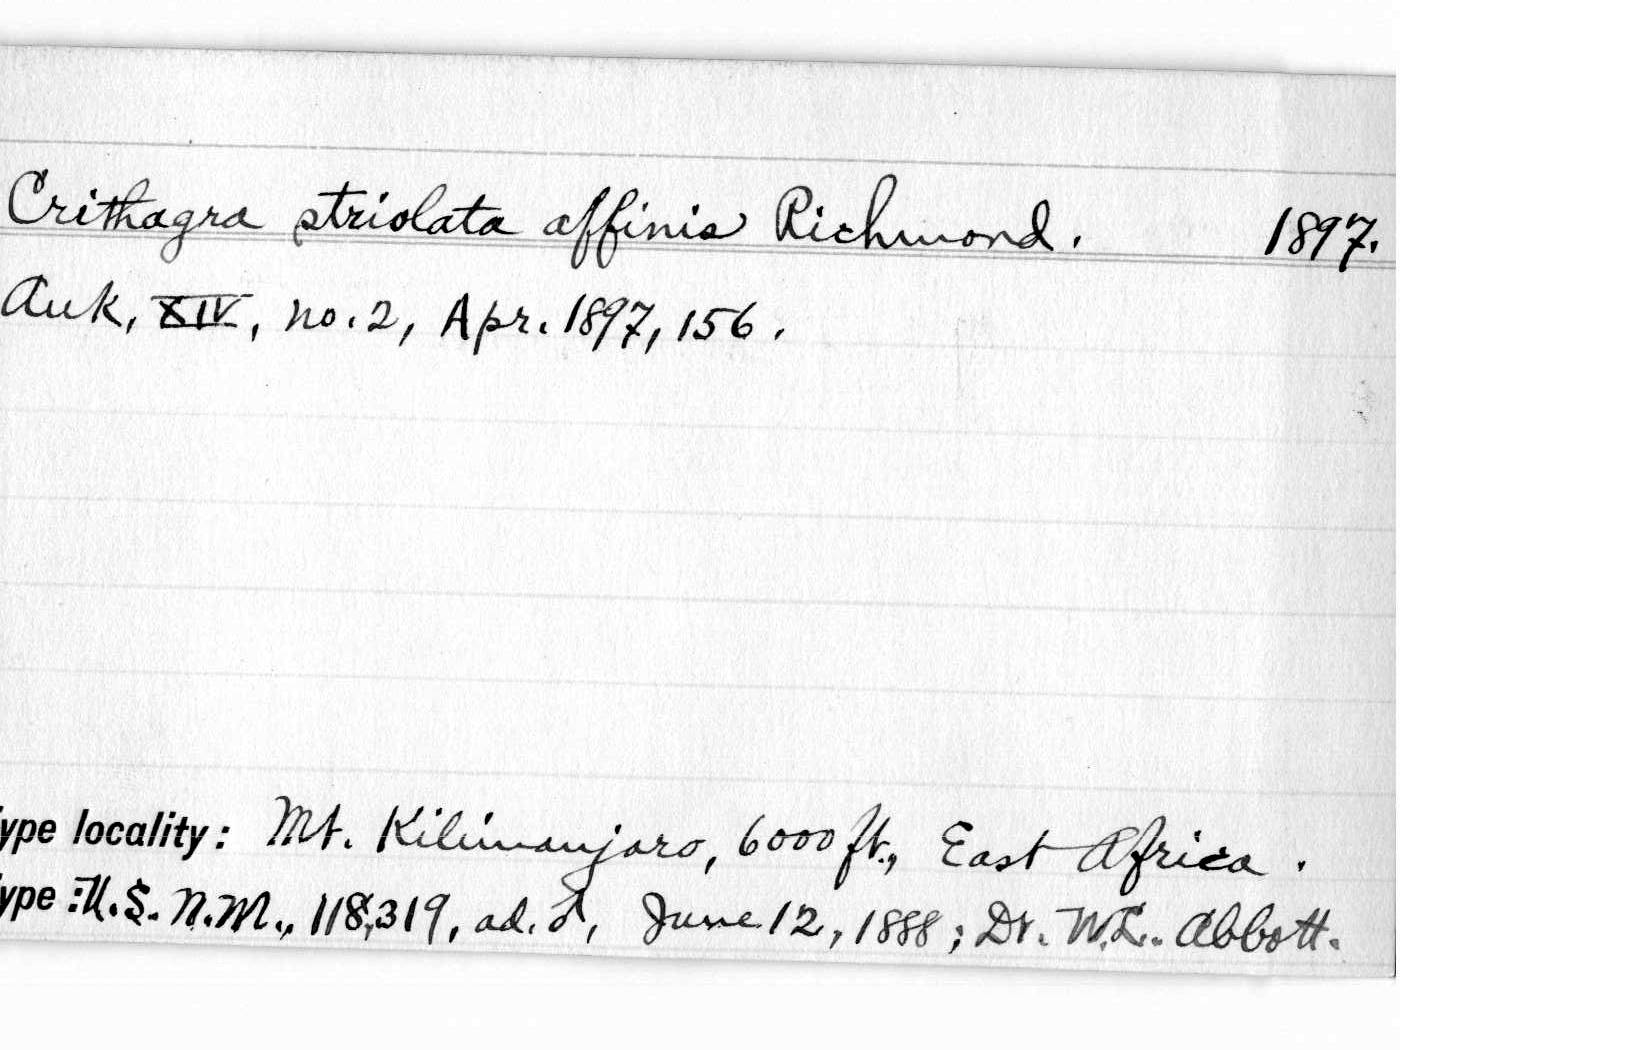 Crithagra striolata affinis Richmond. 1897.
Auk, XIV, no. 2, Apr. 1897, 156.
ype locality: Mt. Kilimanjaro, 6000 ft., East Africa.
ype: U.S.N.M., 118,319, ad. ♂, June 12, 1888; Dr. W.L. Abbott.